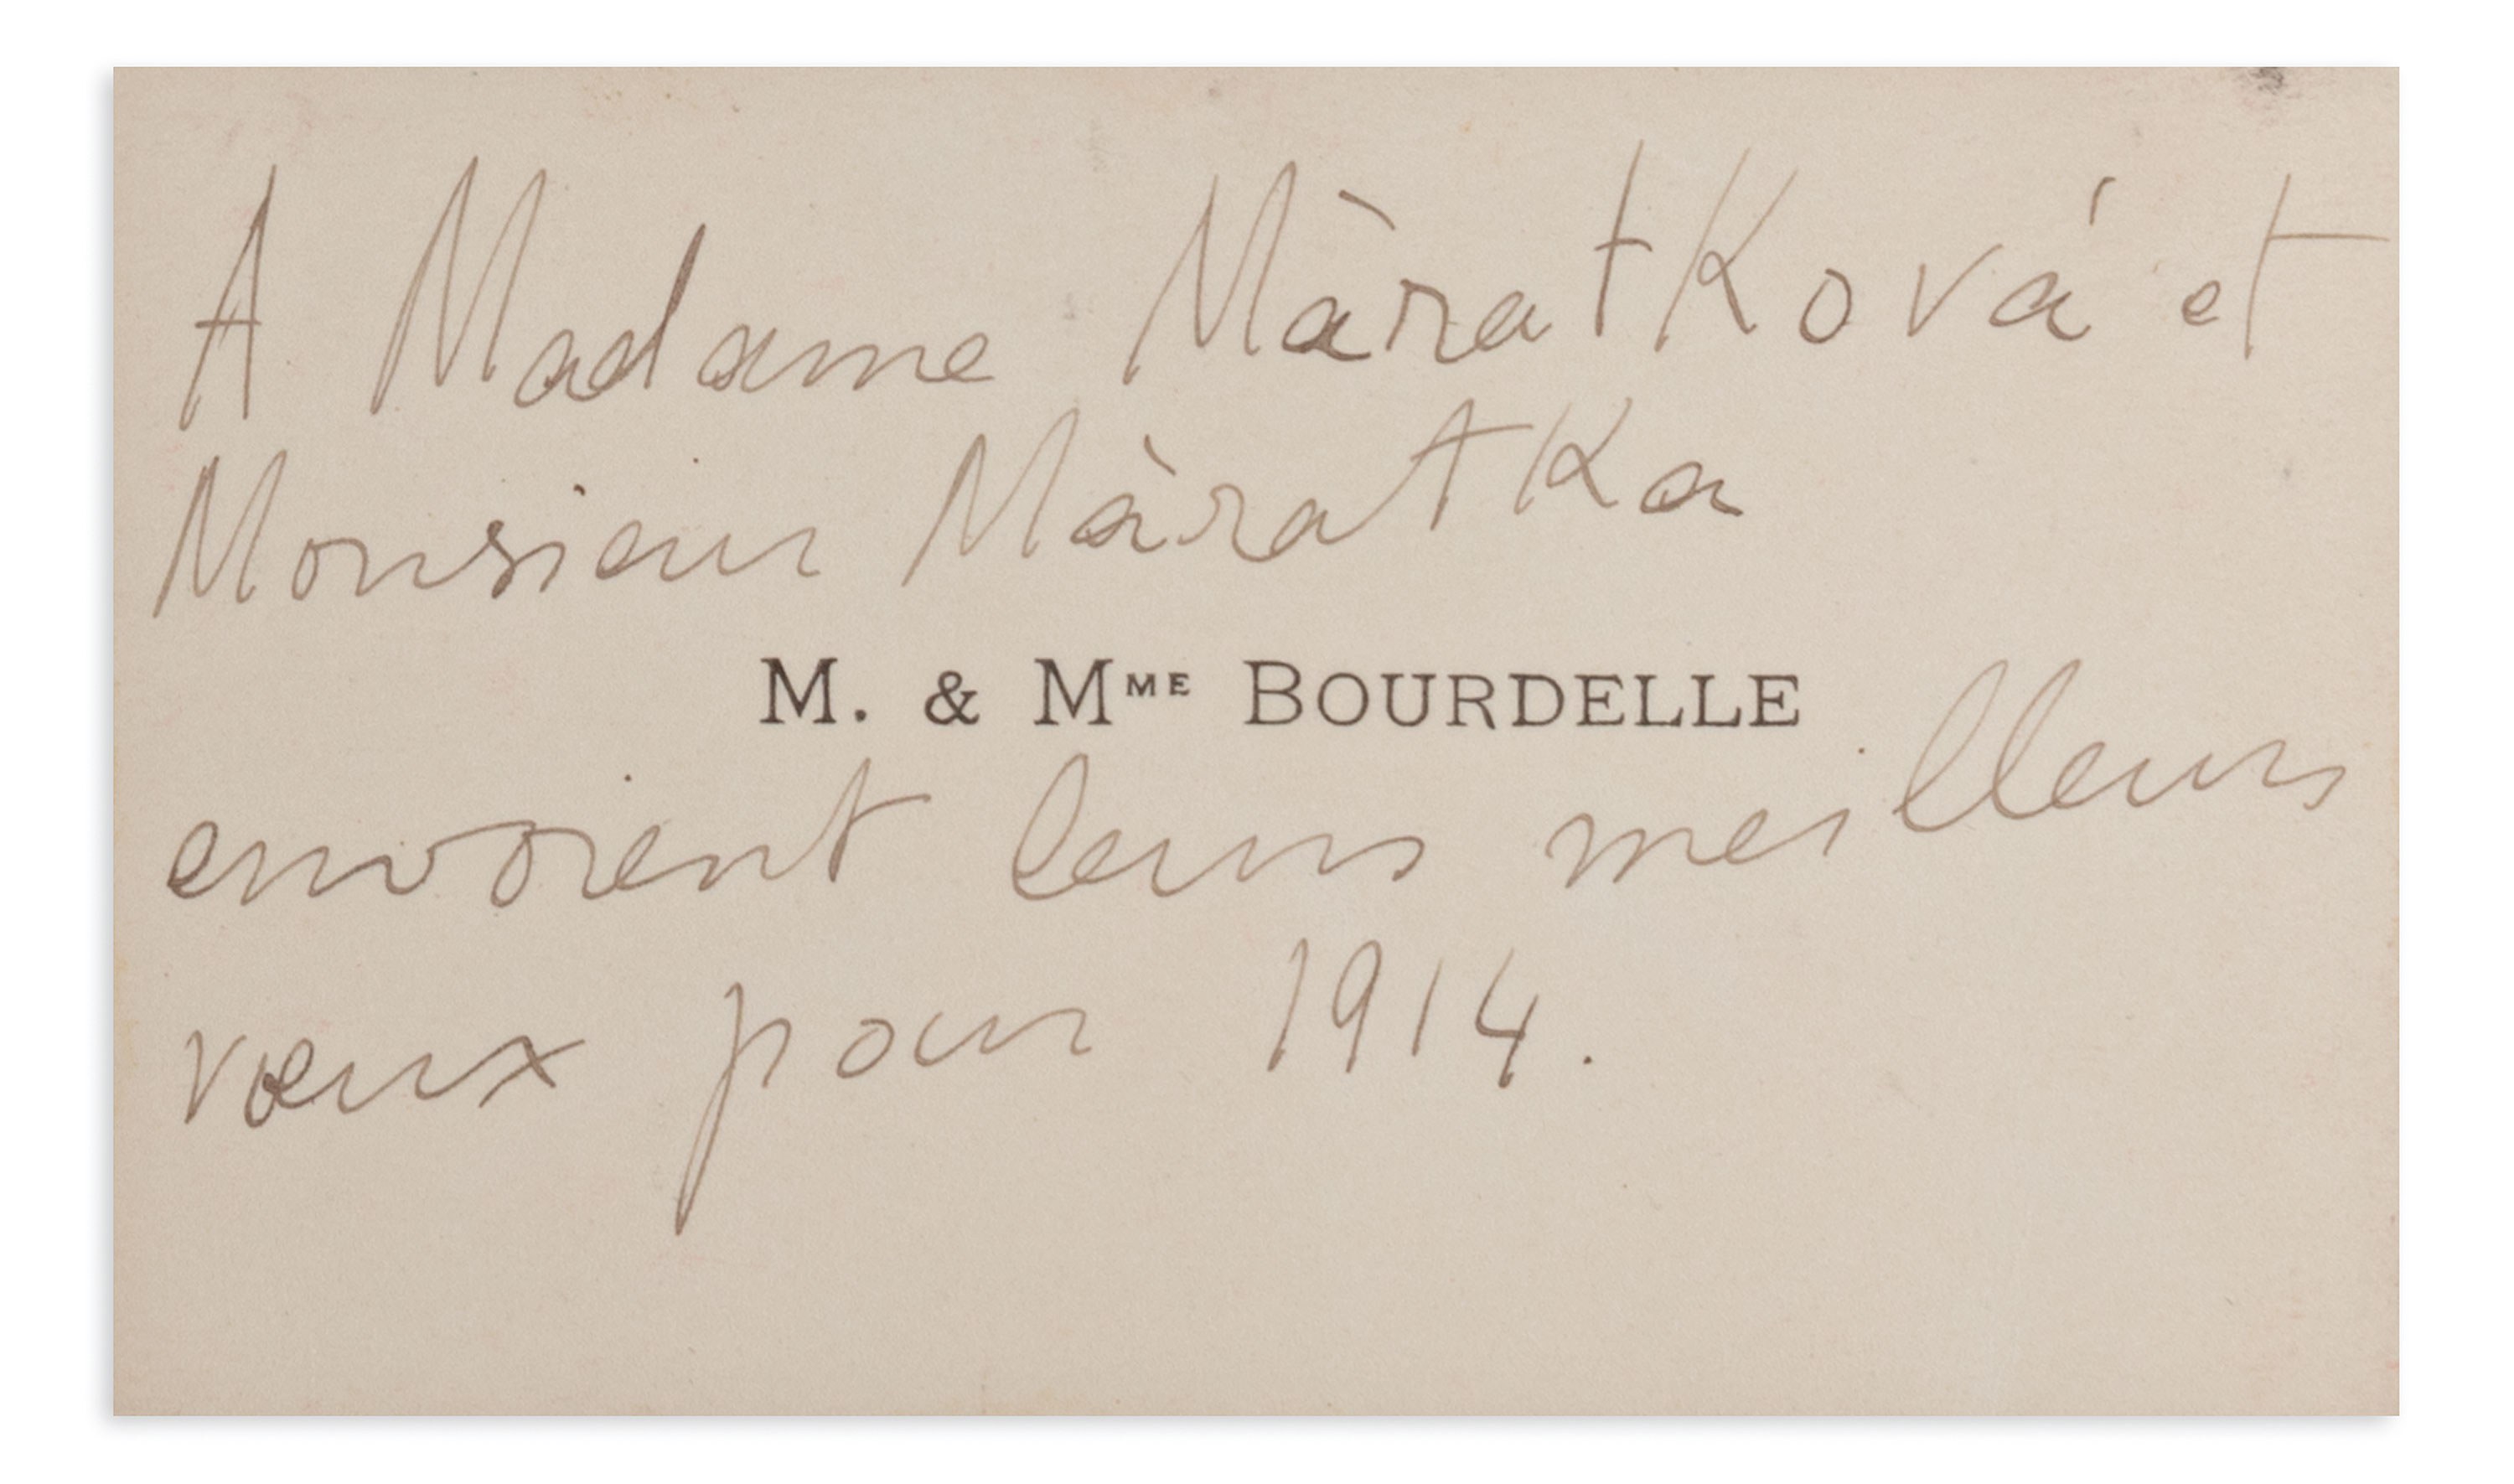 A Madame Màratková et
Monsieur Màratka
M. & Mme Bourdelle
envoient leurs meilleurs
vœux pour 1914.